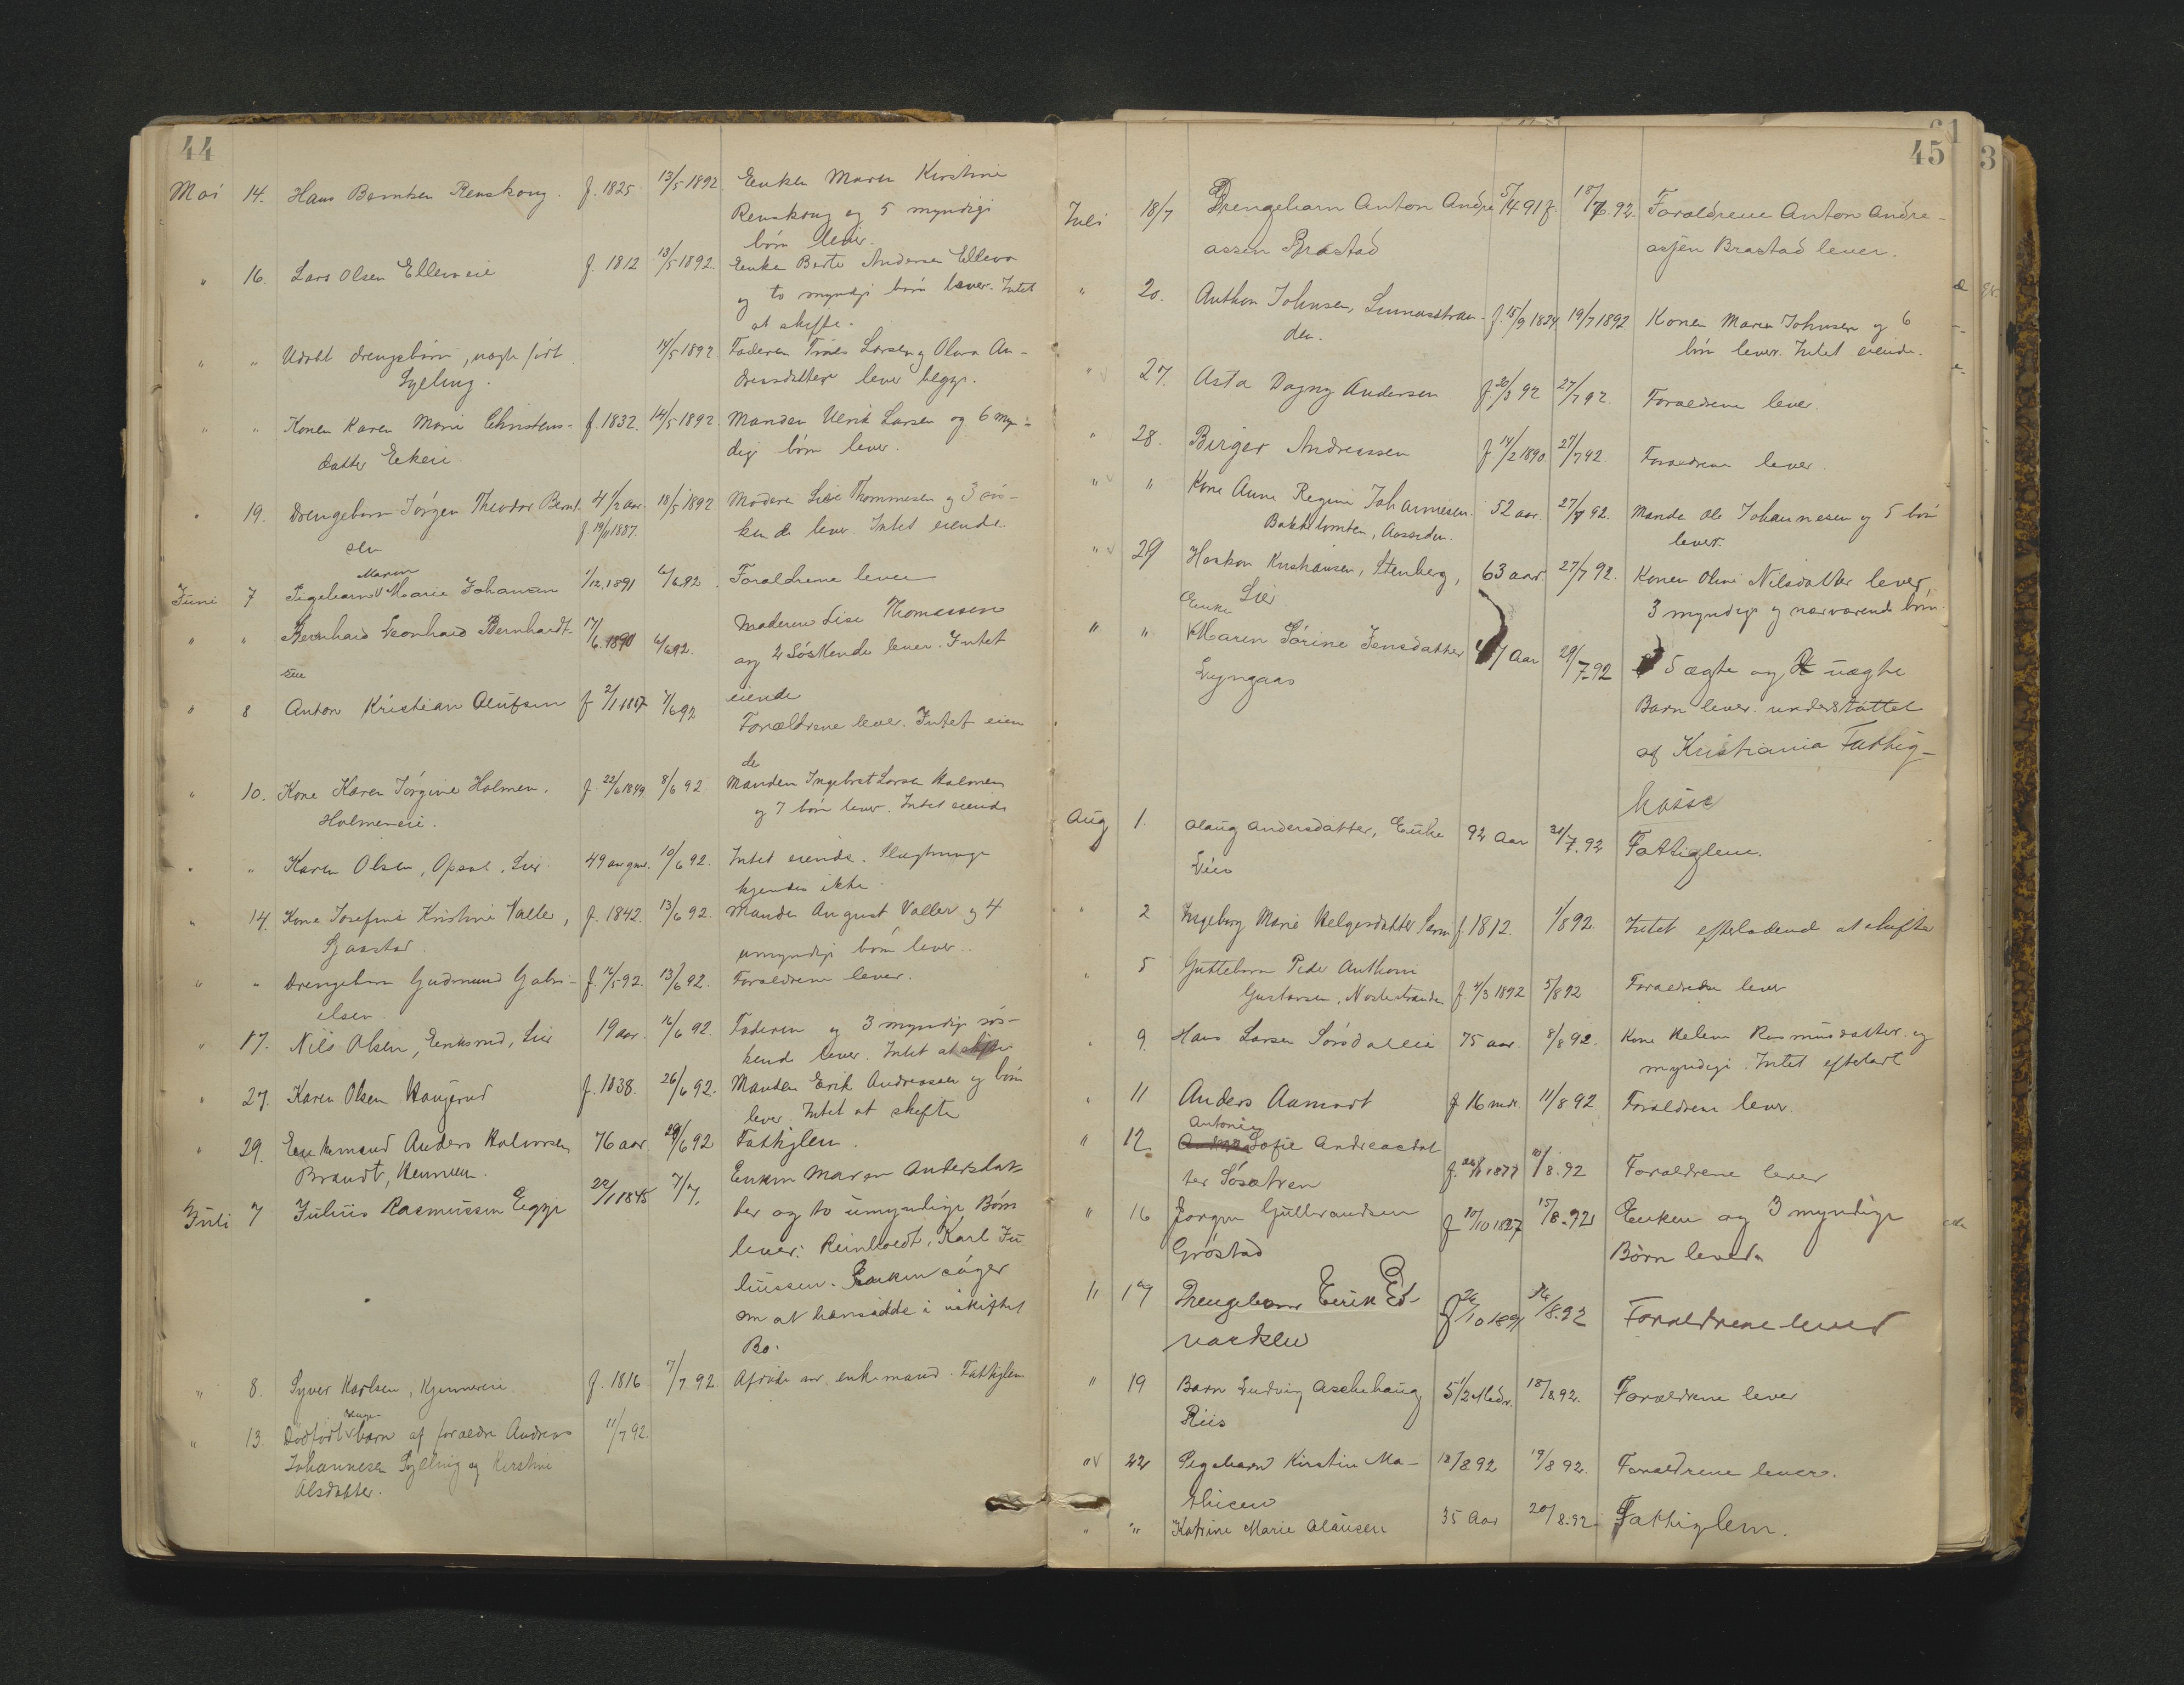 44
Mai 14. Hans Berntsen Renskoug. f. 1825 13/5 1892 Enken Maren Kirstine
Renskoug og 5 myndige
børn lever.
" 16. Lars Olsen Ellevneie f. 1812 13/5 1892. Enke Berte Andersen
og to myndige børn lever. Intet
at skifte.
" " drengebarn, uægte født 14/5 1892 Faderen Larsen og Olava An-
Gjelling. drensdatter lever begge.
" " Konen Karen Marie Christens- f. 1832. 14/5 1892 Manden Ulrik Larsen og 6 myn-
datter Eekeie dige børn lever.
" 19. Drengebarn Jørgen Theodor Bernt- 4 1/2 aar. 18/5 1892 Moderen Lise Thommesen og 3 søs-
sen f. 19/11 1887. kende lever. Intet eiende.
Maren
Juni 7 Pigebarn Marie Johansen 1/12.1891 6/6 92. Forældrene lever
" " Bernhard Leonhard Bernhardt- 17/6.1890 6/6 92. Moderen Lise Thomassen
sen og 2 Søskende lever. Intet
eiende
" 8 Anton Kristian Olufsen f 2/1 1887 7/6 92 Forældrene lever. Intet eien
de
" 10. Kone Karen Jørgine Holmen. f. 22/6 1849 8/6 92 Manden Ingebret Larsen Holmen
Holmeneie. og 7 børn lever. Intet eiende
" " Karen Olsen, Opsal, Lier 49 aar gml. 10/6 92. Intet eiende. Slægtninge
kjendes ikke.
" 14. Kone Josefine Kristine Valler, f. 1842. 13/6 92. Manden August Valler og 4
Gjaastad. umyndige børn lever.
" " Drengebarn Gudmund Gabri- f. 16/5 92. 13/6 92. Forældrene lever.
elsen.
" 17. Nils Olsen, Eeksrud, Lier 19 aar. 16/6 92. Faderen og 3 myndige søs-
kende lever. Intet at skifte
" 27. Karen Olsen Haugerud f. 1838. 26/6 92. Manden Erik Andreassen og børn
lever. Intet at skifte
" 29. Enkemand Anders Halvorsen 76 aar 29/6 92 Fattiglem.
Brandt, Hennum.
Juli 7 Julius Rasmussen Egge 22/1 1845 7/7. Enken Maren Andersdat-
ter og to umyndige Børn
lever: Reinhardt, Karl Ju
liussen. Enken søger
om at hensidde i uskiftet
Bo.
" 8. Syver Karlsen, Kjennereie f. 1816 7/7 92. Afdøde var enkemand. Fattiglem
" 13. Dødfødt barn af forældre Andreas 11/7 92.
Johannesen Gjelling og Kirstine
Olsdatter.
61
45
3
Juli 18/7 Drengebarn Anton Andre 5/4 91 f. 18/7.92. Forældrene Anton Andre-
assen Brastad assen Brastad lever.
" 20. Anthon Johnsen, Linnesstran- f. 15/9 1834 19/7 1892 Konen Maren Johnsen og 6
den. børn lever. Intet eiende.
" 27. Asta Dagny Andersen f. 20/3 92 27/7 92. Forældrene lever.
" 28. Birger Andreassen f 14/2 1890 27/7 92 Forældrene lever.
" " Kone Anne Regine Johannesen. 52 aar. 27/7 92. Mande Ole Johannesen og 5 børn
Bakketomten, Aassiden. lever.
" 29 Haakon Kristiansen, Stenberg, 63 aar. 27/7 92. Konen Oline Nilsdatter lever,
Lier 3 myndige og nærværende børn.
Enke
" " Maren Sørine Jensdatter 47 Aar 29/7.92 5 ægte og 2 uægte
Lyngaas Barn lever. understøttet
af Kristiania Fattig-
kasse
Aug 1. Olaug Andersdatter, Enke 92 Aar 31/7.92 Fattiglem.
Lier
" 2 Ingeborg Marie Helgesdatter f. 1812. 1/8 92. Intet efterladende at skifte
" 5 Guttebarn Peder Anthoni
Gustavsen, Nøstestranden f 4/3 1892 5/8 92 Forældrene lever
" 9. Hans Larsen Sørsdaleie 75 aar. 8/8 92. Kone Helene Rasmusdatter og
myndige. Intet efterladt
" 11 Anders Aamodt f 16 mdr. 11/8 92 Forældrene lever.
Antonie
" 12. Sofie Andreasdat 8.92 Forældrene lever
ter Søsætren
" 16 Jørgen Gulbrandsen f 10/10 1827 15/8.92 Enken og 3 myndige
Grøstad Børn lever
" 19 Drengebarn Eerik Ed- f 1891 8.92 Forældrene lever
vardsen
" 19 Barn Ludvig Aschehaug 5 1/2 Mdr. 18/8 92. Forældrene lever
Riis
" 22 Pigebarn Kirstin Ma- 18/8 92 19/8 92. Forældrene lever.
thisen
" " Katrine Marie Olausen 35 Aar 20/8.92 Fattiglem.